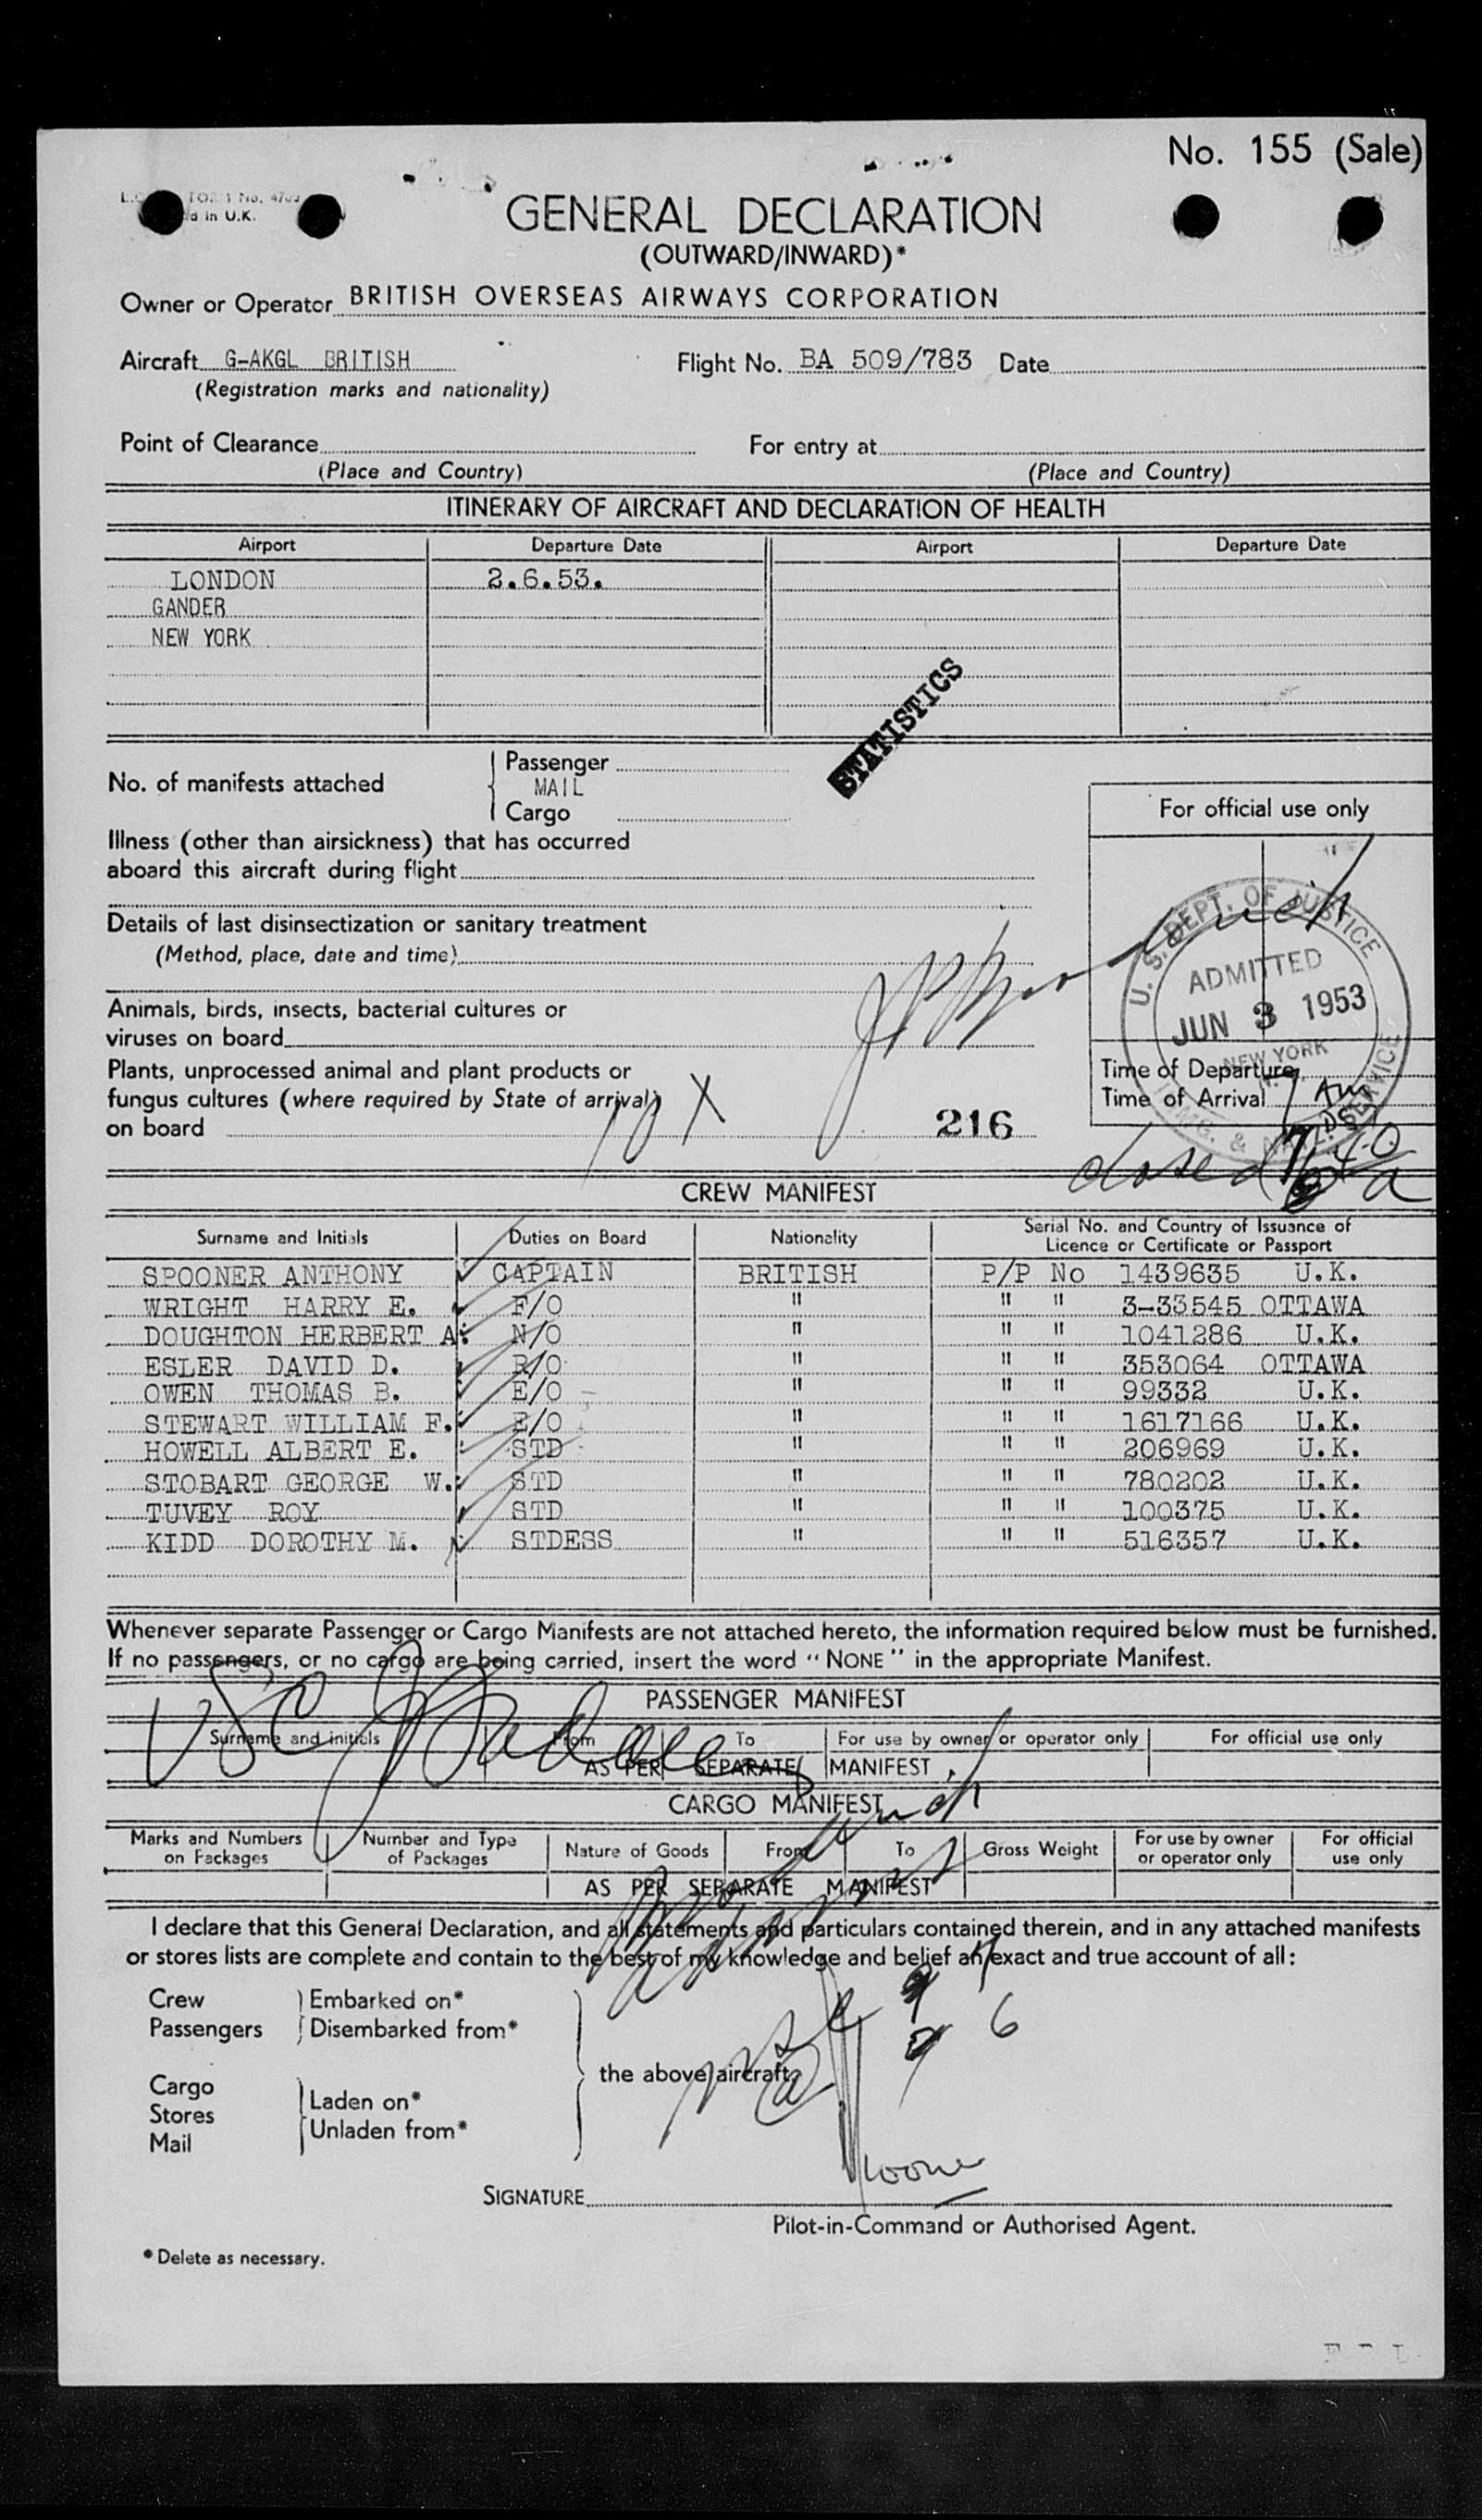 No. 155 (Sale)
in U.K.
GENERAL DECLARATION
(OUTWARD/INWARD)*
Owner or Operator BRITISH OVERSEAS AIRWAYS CORPORATION
Aircraft G-AKGL BRITISH Flight No. BA 509/783 Date
(Registration marks and nationality)
Point of Clearance For entry at
(Place and Country) (Place and Country)
ITINERARY OF AIRCRAFT AND DECLARATION OF HEALTH
Airport Departure Date Airport Departure Date
LONDON 2.6.53.
GANDER
NEW YORK
STATISTICS
No. of manifests attached
Passenger
MAIL
Cargo
For official use only
Illness (other than airsickness) that has occurred
aboard this aircraft during flight
Details of last disinsectization or sanitary treatment
(Method, place, date and time)
U. S. DEPT. OF JUSTICE
ADMITTED
JUN 3 1953
NEW YORK
IMMG. & NATZ. SERVICE
Animals, birds, insects, bacterial cultures or
viruses on board
Plants, unprocessed animal and plant products or
fungus cultures (where required by State of arrival)
on board
216
Time of Departure
Time of Arrival 7 AM
closed 7 40 a
CREW MANIFEST
Surname and Initials Duties on Board Nationality Serial No. and Country of Issuance of
Licence or Certificate or Passport
SPOONER ANTHONY CAPTAIN BRITISH P/P No 1439635 U.K.
WRIGHT HARRY E. F/O " " " 3-33545 OTTAWA
DOUGHTON HERBERT A. N/O " " " 1041286 U.K.
ESLER DAVID D. R/O " " " 353064 OTTAWA
OWEN THOMAS B. E/O " " " 99332 U.K.
STEWART WILLIAM F. E/O " " " 1617166 U.K.
HOWELL ALBERT E. STD " " " 206969 U.K.
STOBART GEORGE W. STD " " " 780202 U.K.
TUVEY ROY STD " " " 100375 U.K.
KIDD DOROTHY M. STDESS " " " 516357 U.K.
Whenever separate Passenger or Cargo Manifests are not attached hereto, the information required below must be furnished.
If no passengers, or no cargo are being carried, insert the word "NONE" in the appropriate Manifest.
PASSENGER MANIFEST
Surname and initials From To For use by owner or operator only For official use only
AS PER SEPARATE MANIFEST
CARGO MANIFEST
Marks and Numbers on Packages Number and Type of Packages Nature of Goods From To Gross Weight For use by owner or operator only For official use only
AS PER SEPARATE MANIFEST
I declare that this General Declaration, and all statements and particulars contained therein, and in any attached manifests
or stores lists are complete and contain to the best of my knowledge and belief an exact and true account of all:
Crew
Passengers
Embarked on*
Disembarked from*
the above aircraft.
Cargo
Stores
Mail
Laden on*
Unladen from*
SIGNATURE
Pilot-in-Command or Authorised Agent.
* Delete as necessary.